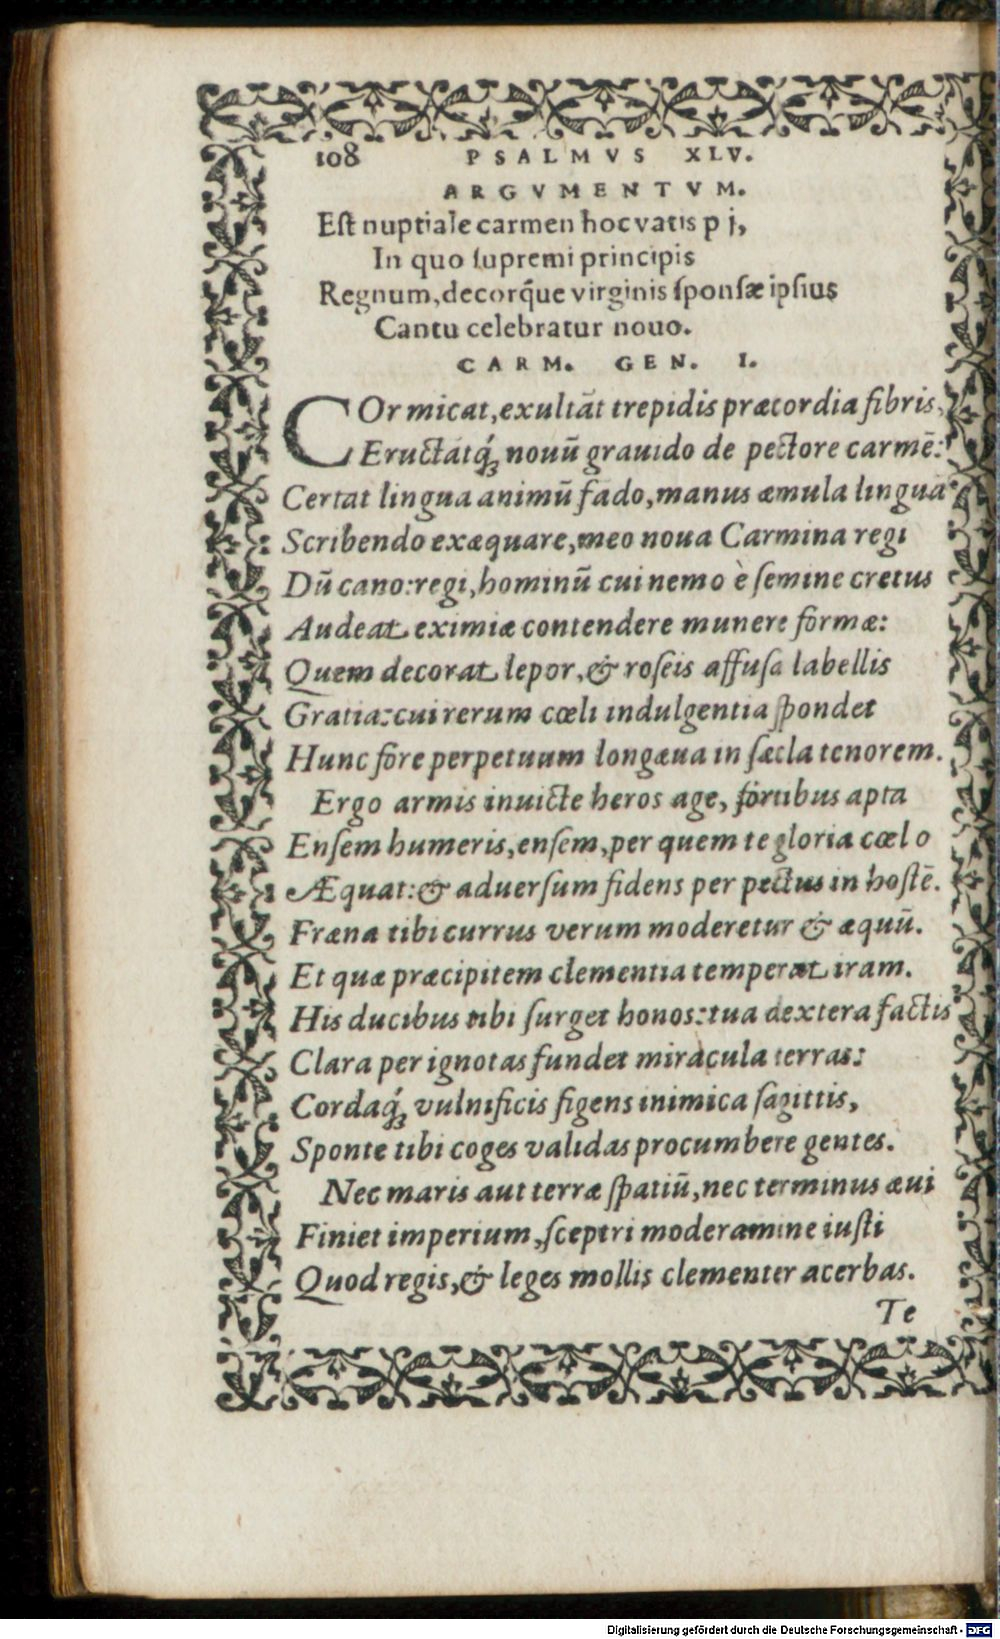 108 PSALMVS XLV.
ARGVMENTVM.
Est nuptiale carmen hoc vatis p j,
In quo supremi principis
Regnum, decorq̃ue virginis sponsæ ipsius
Cantu celebratur nouo.
CARM. GEN. I.
COr micat, exultãt trepidis præcordia fibris,
Eructátq́; nouũ grauido de pectore carmẽ:
Certat lingua animũ fãdo, manus æmula linguã
Scribendo exæquare, meo noua Carmina regi
Dũ cano: regi, hominũ cui nemo è semine cretus
Audeat eximiæ contendere munere formæ:
Quem decorat lepor, & roseis affusa labellis
Gratia: cui rerum cœli indulgentia spondet
Hunc fore perpetuum longæua in sæcla tenorem.
Ergo armis inuicte heros age, fortibus apta
Ensem humeris, ensem, per quem te gloria cœl o
Æquat: & aduersum fidens per pectus in hostẽ.
Fræna tibi currus verum moderetur & æquũ.
Et quæ præcipitem clementia temperat iram.
His ducibus tibi surget honos: tua dextera factis
Clara per ignotas fundet miracula terras:
Cordaq́; vulnificis figens inimica sagittis,
Sponte tibi coges validas procumbere gentes.
Nec maris aut terræ spatiũ, nec terminus æui
Finiet imperium, sceptri moderamine iusti
Quod regis, & leges mollis clementer acerbas.
Te
Digitalisierung gefördert durch die Deutsche Forschungsgemeinschaft - DFG